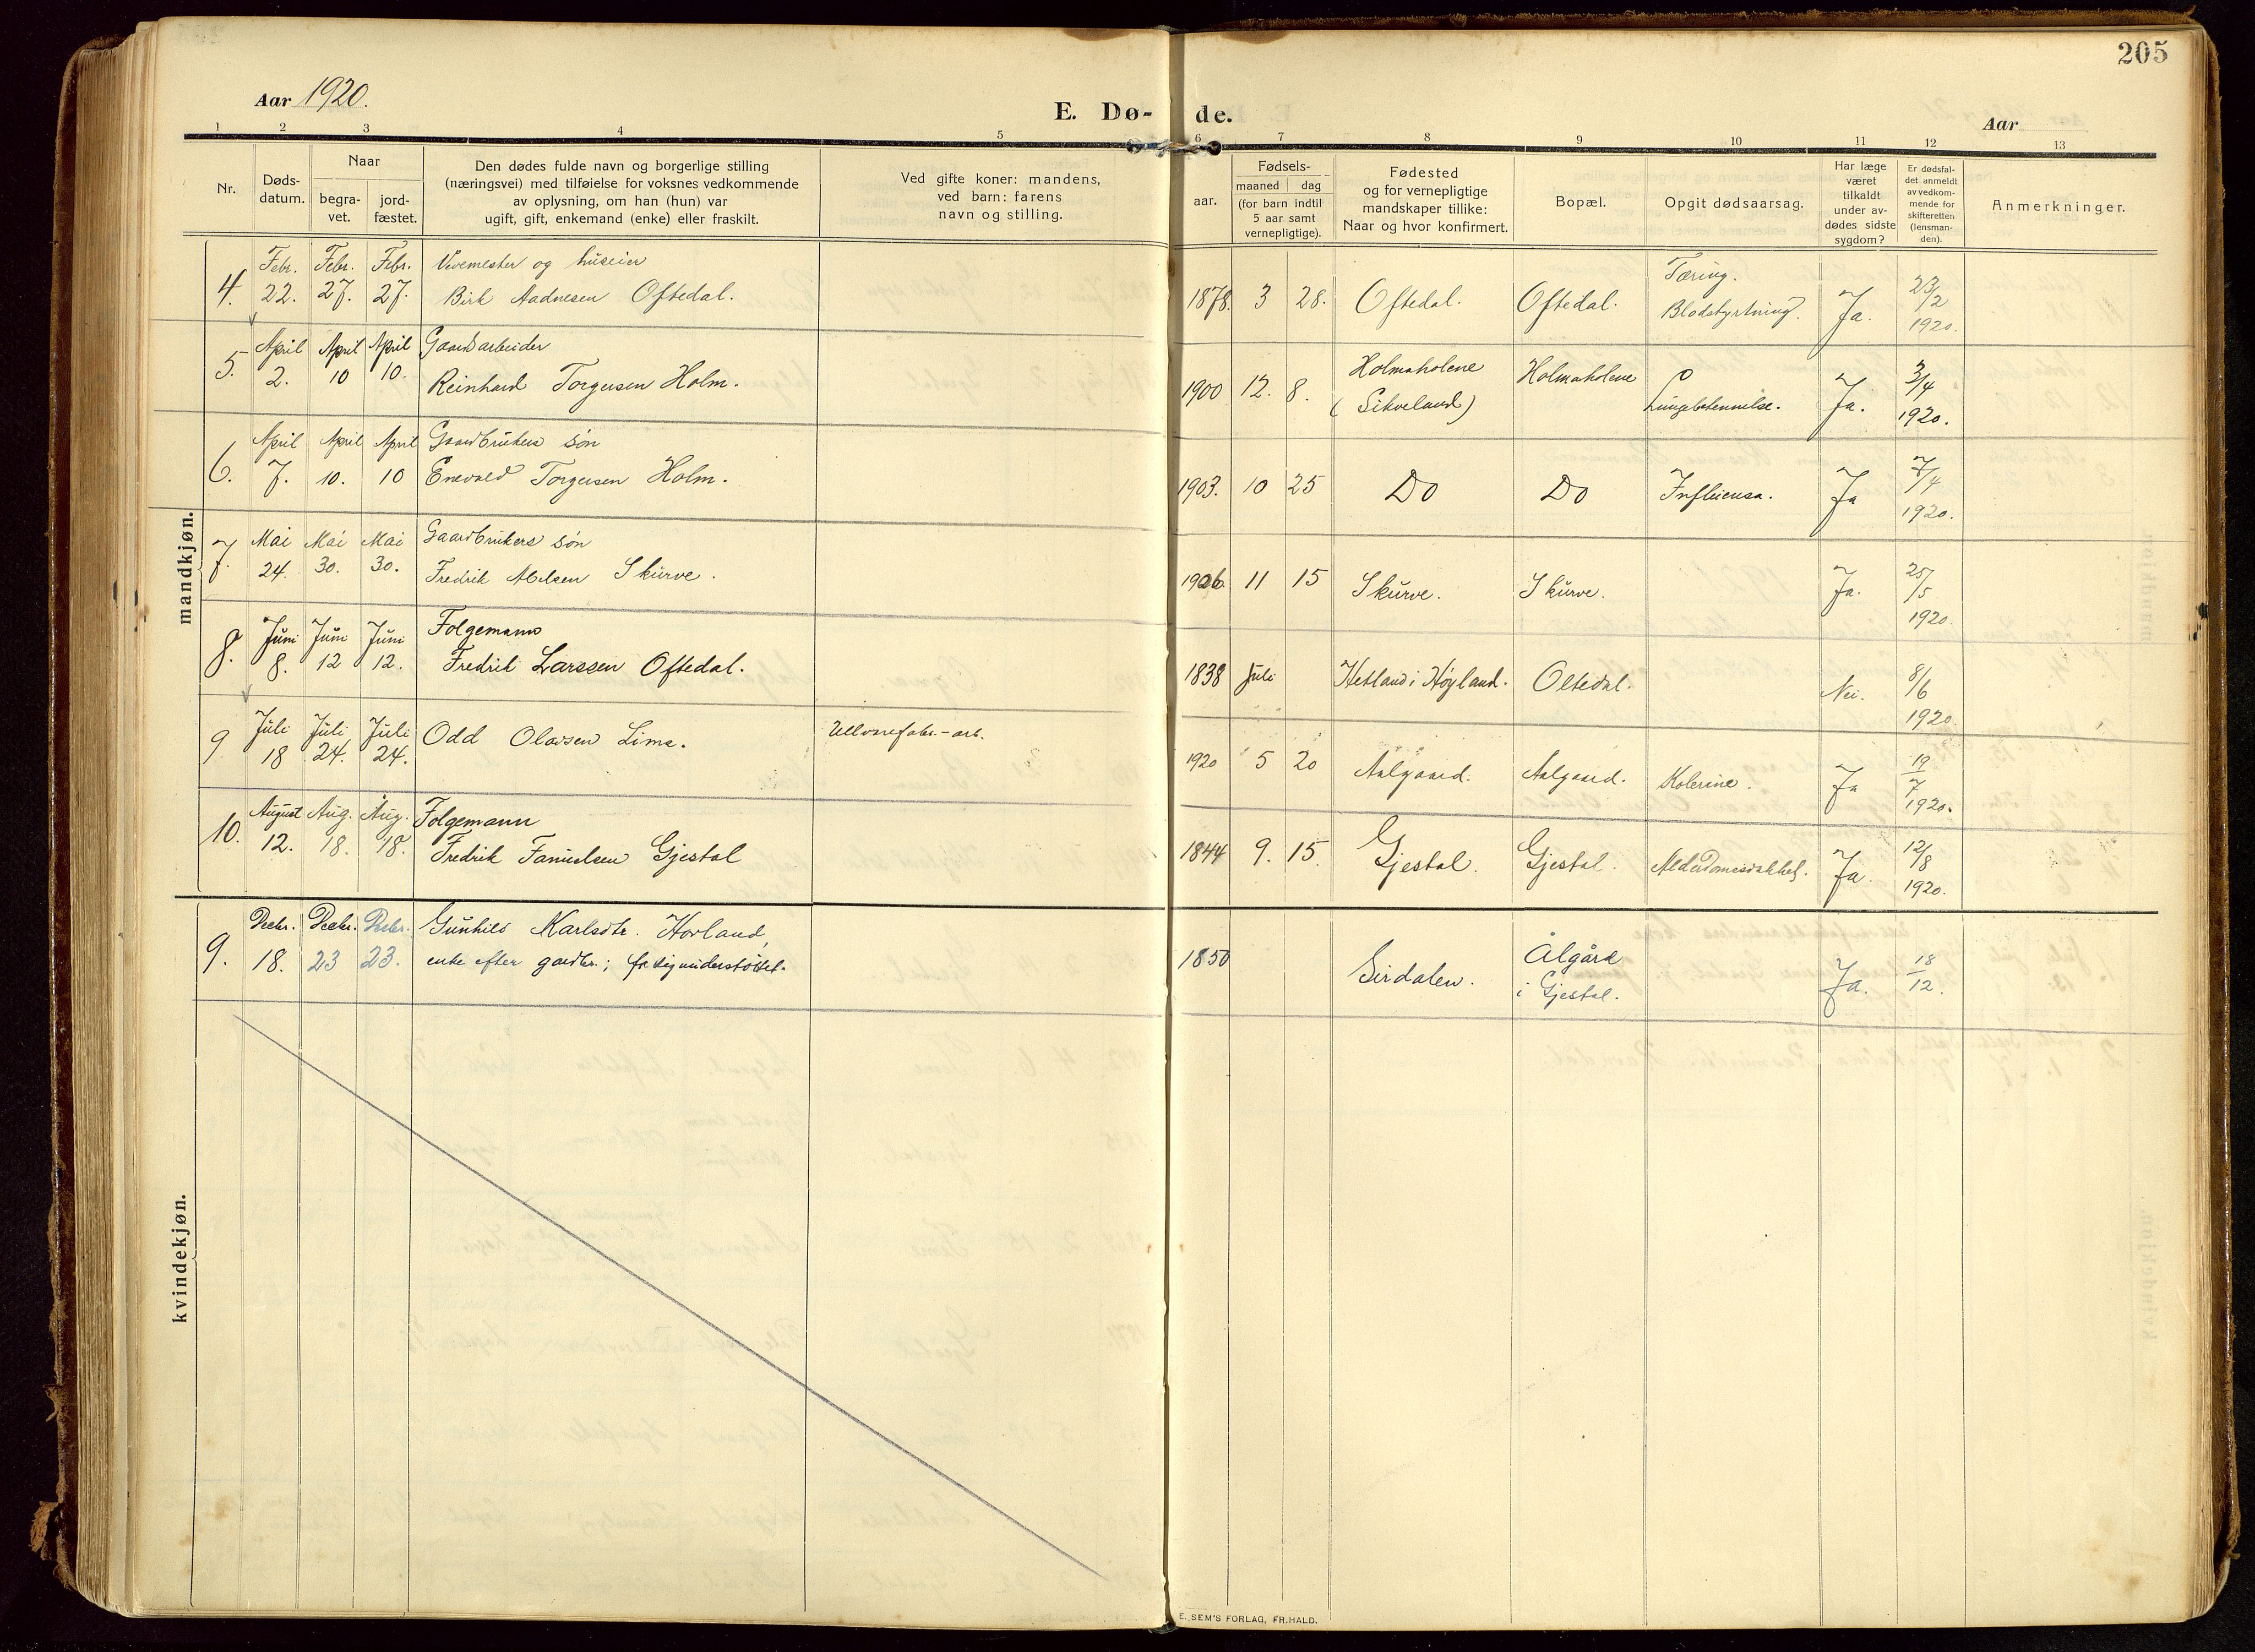 205
Aar 1920.
E. Dø- de.
Aar
1 2 3 4 5 6 7 8 9 10 11 12 13
Nr.
Døds-
datum.
Naar
begra-
vet.
jord-
fæstet.
Den dødes fulde navn og borgerlige stilling
(næringsvei) med tilføielse for voksnes vedkommende
av oplysning, om han (hun) var
ugift, gift, enkemand (enke) eller fraskilt.
Ved gifte koner: mandens,
ved barn: farens
navn og stilling.
Fødsels-
aar.
maaned dag
(for barn indtil
5 aar samt
vernepligtige).
Fødested
og for vernepligtige
mandskaper tillike:
Naar og hvor konfirmert.
Bopæl.
Opgit dødsaarsag.
Har læge
været
tilkaldt
under av-
dødes sidste
sygdom?
Er dødsfal-
det anmeldt
av vedkom-
mende for
skifteretten
(lensman-
den).
Anmerkninger.
mandkjøn.
Febr. Febr. Febr. Vevemester og huseier Tæring. 23/2
4. 22. 27. 27. Birk Aadnesen Oftedal. 1878. 3 28. Oftedal. Oftedal. Blodstyrtning. Ja. 1920.
April April April Gaardarbeider Holmaholene Holmaholene 3/4
5. 2. 10 10. Reinhard Torgersen Holm. 1900 12. 8. (Sikveland) Lungebetennelse. Ja. 1920.
April April April Gaardbrukers søn 7/4
6. 7. 10. 10 Enevald Torgersen Holm. 1903. 10 25 Do Do Influensa. Ja 1920.
Mai Mai Mai Gaardbrukers søn 25/5
7. 24. 30. 30. Fredrik Skurve. 11 15 Skurve. Skurve. Ja. 1920.
Juni Juni Juni Folgemann 8/6
8. 8. 12 12. Fredrik Larssen Oftedal. 1838 Juli Hetland i Høyland. Oltedal. Nei. 1920.
Juli Juli Juli Ullvarefabr.-arb. 19/7
9 18 24. 24. Odd Olavsen Lima. 1920 5 20 Aalgaard. Aalgaard. Kolerine. Ja 1920.
August Aug. Aug. Folgemann 12/8
10. 12. 18. 18. Fredrik Fanuelsen Gjestal 1844 9. 15. Gjestal. Gjestal. Alderdomssvakhet. Ja. 1920.
kvindekjøn.
Decbr. Decbr. Decbr. Gunhild Karlsdtr. Hovland, Ålgård
9. 18. 23 23. enke efter gardbr.; fattigunderstøttet. 1850 Sirdalen. i Gjestal. Ja. 18/12.
E. SEM'S FORLAG, FR.HALD.